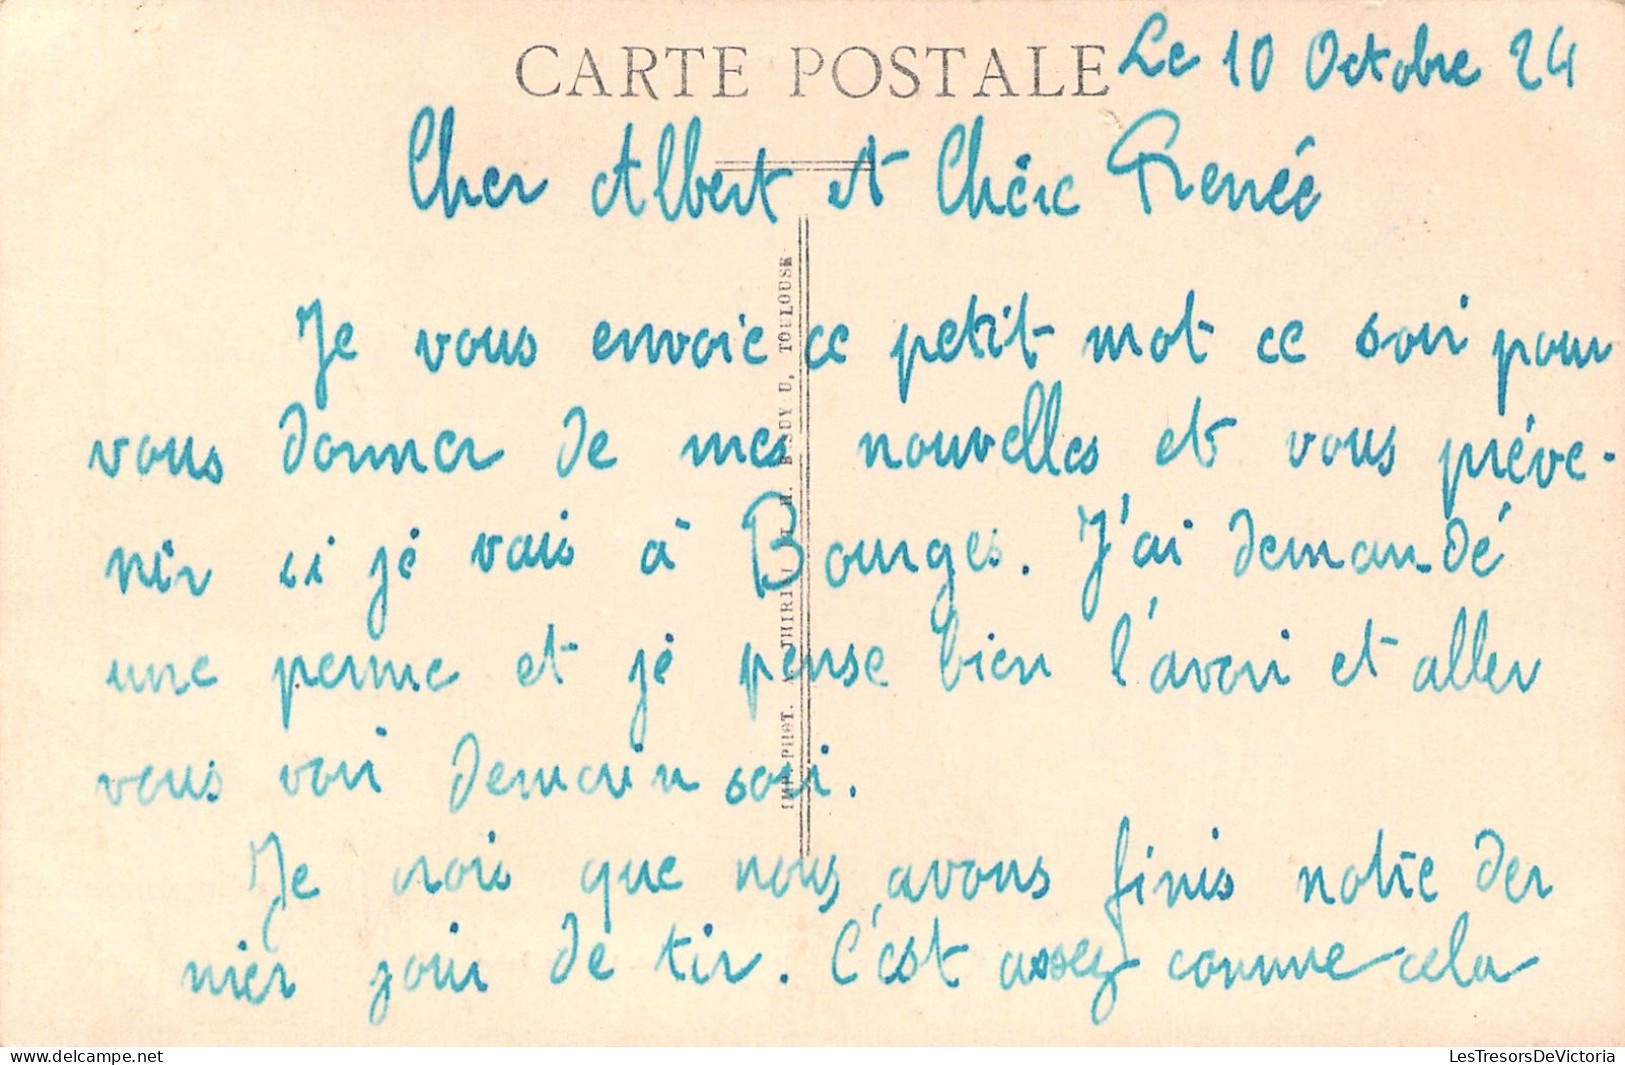 CARTE POSTALE
Le 10 Octobre 24
Cher Albert et Chère Renée
Je vous envoie ce petit mot ce soir pour
vous donner de mes nouvelles et vous préve-
nir si je vais à Bourges. J'ai demandé
une perme et je pense bien l'avoir et aller
vous voir demain soir.
Je crois que nous avons finis notre der
nier jour de tir. C'est assez comme cela
IMP. PHOT. THIRI TOULOUSE
delcampe.net
LesTresorsDeVictoria